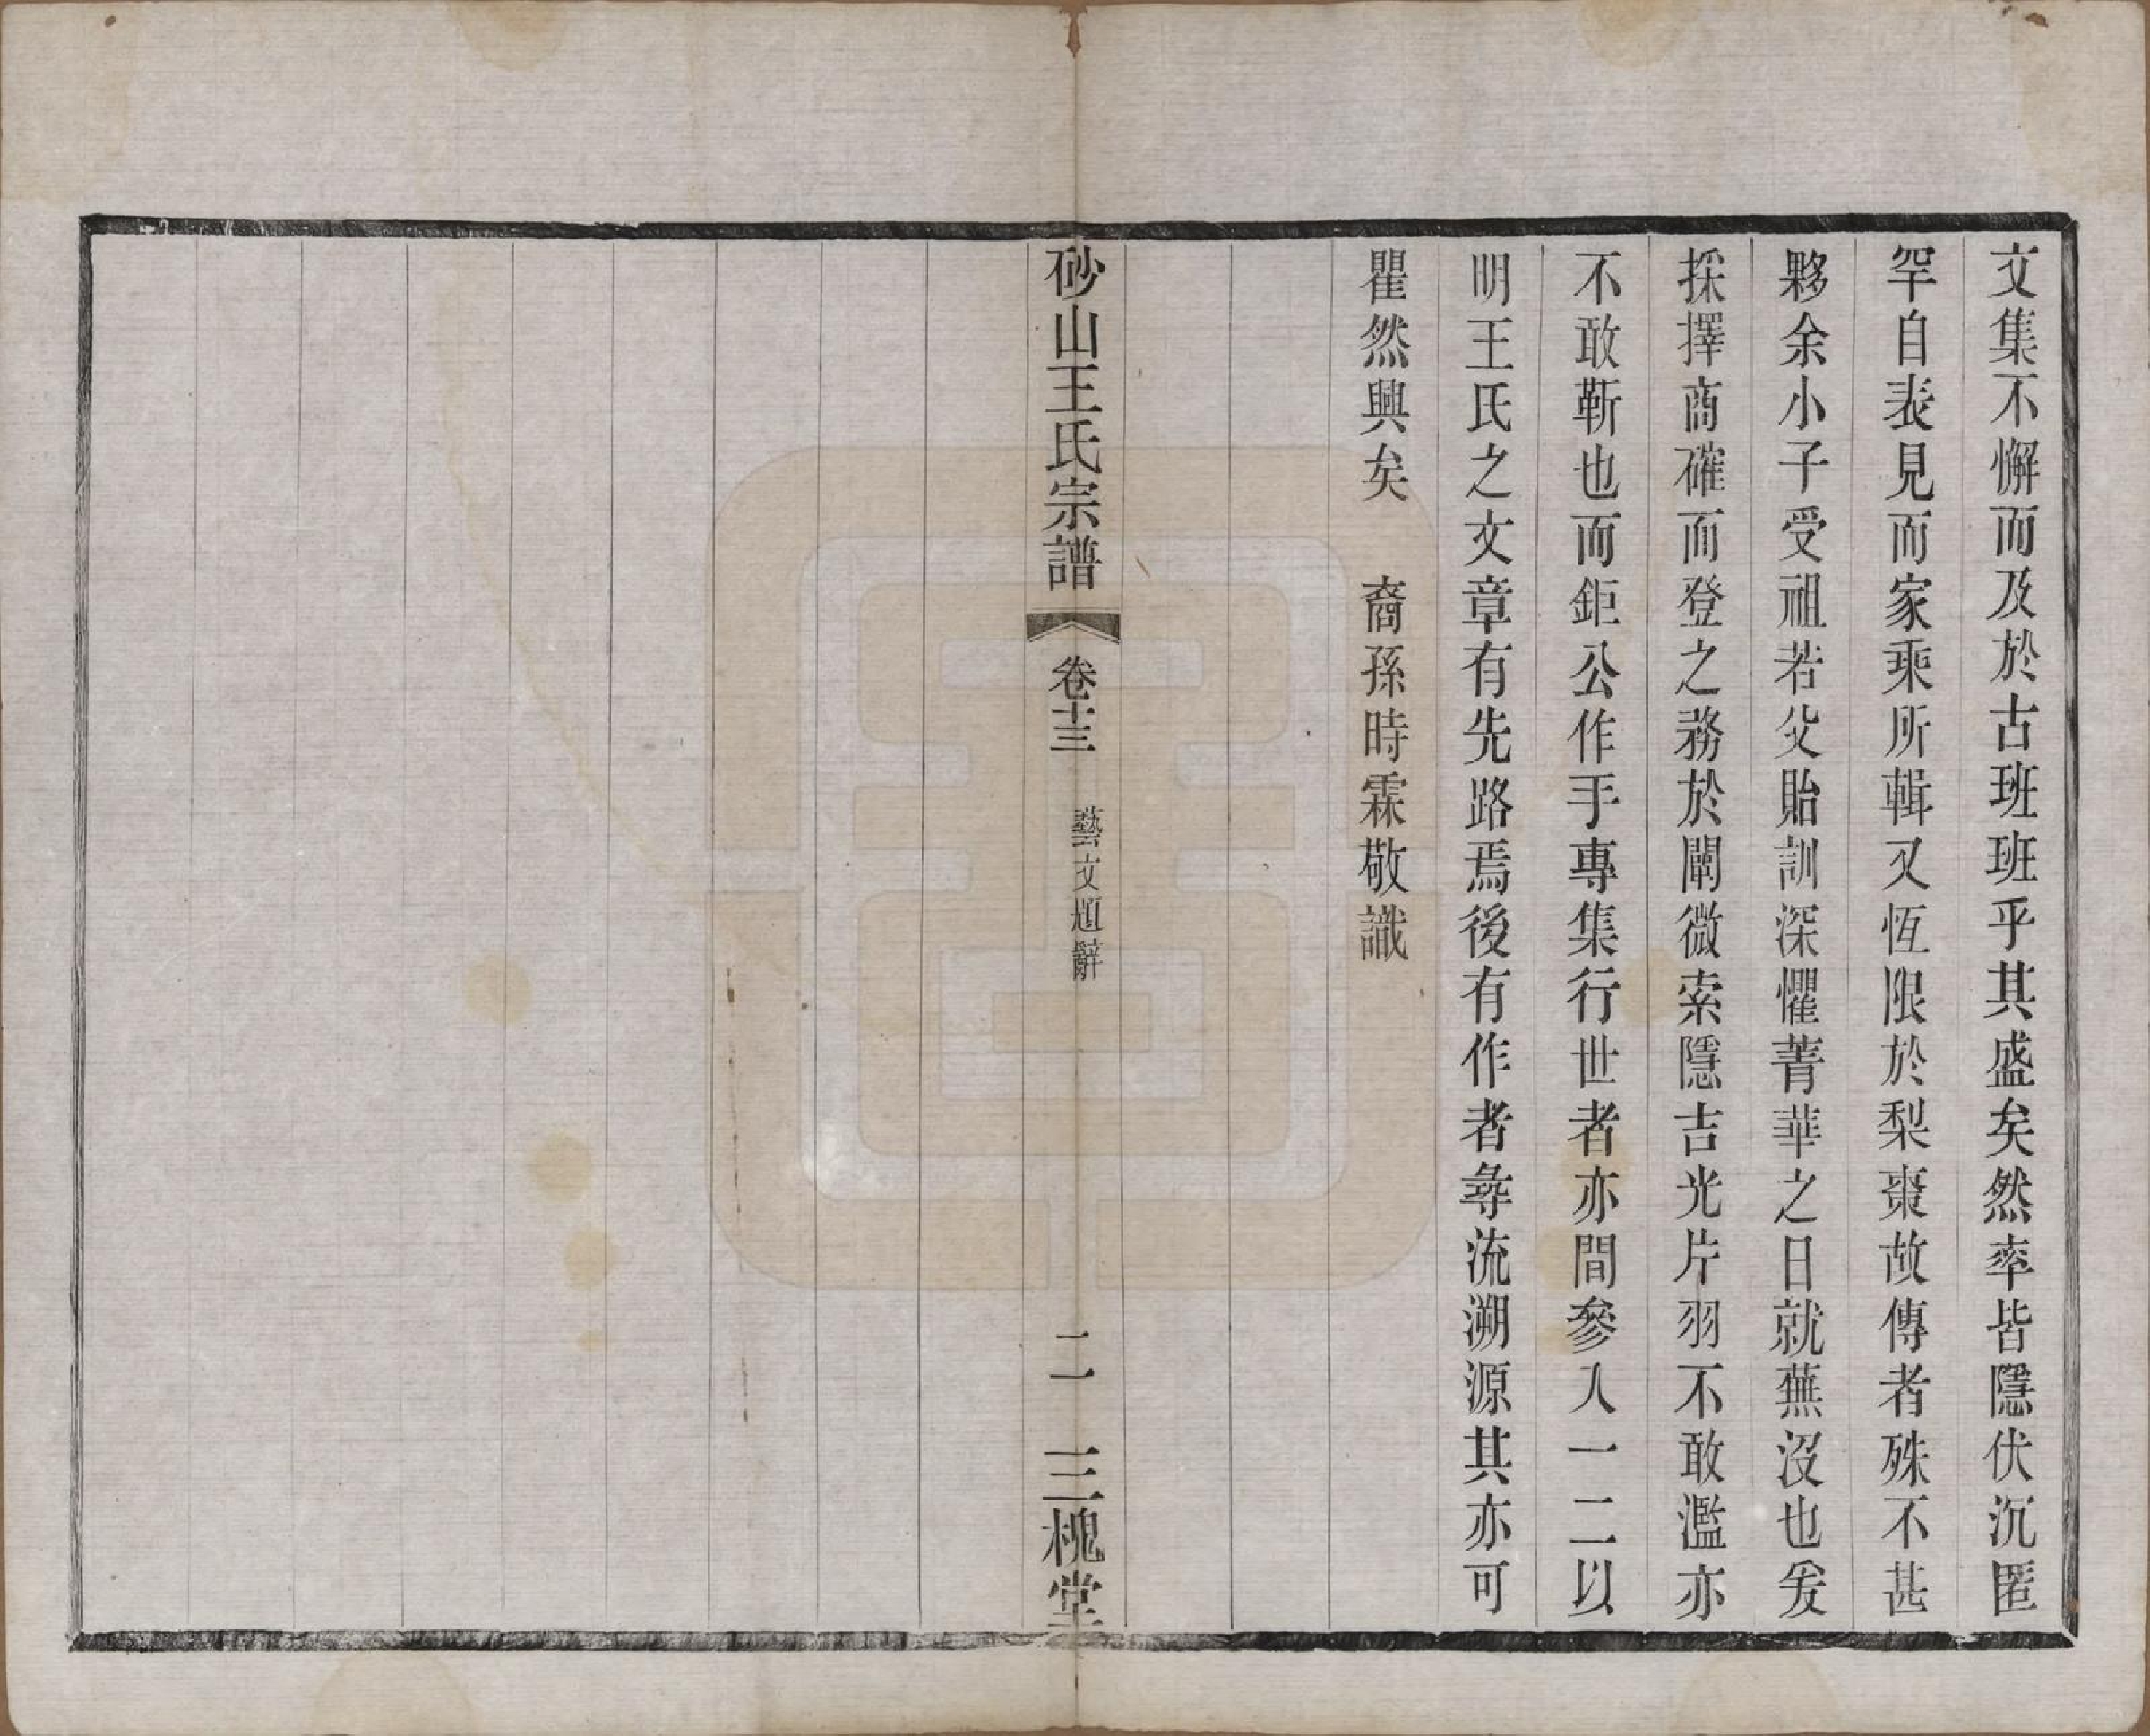 文集不懈而及於古班班乎其盛矣然率皆隱伏沉匿
罕自表見而家乘所輯又恆限於梨棗故傳者殊不甚
夥余小子受祖若父貽訓深懼菁華之日就蕪沒也爰
採擇商確而登之務於闡微索隱吉光片羽不敢濫亦
不敢靳也而鉅公作手專集行世者亦間參入一二以
明王氏之文章有先路焉後有作者尋流溯源其亦可
瞿然興矣　裔孫時霖敬識
砂山王氏宗譜　卷十三　藝文題辭　二　三槐堂